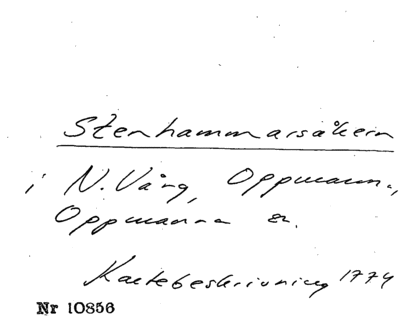 Stenhammarsåkern
i N. Vång, Oppmanna,
Oppmanna sn.
Kartebeskrivning 1774
Nr 10856